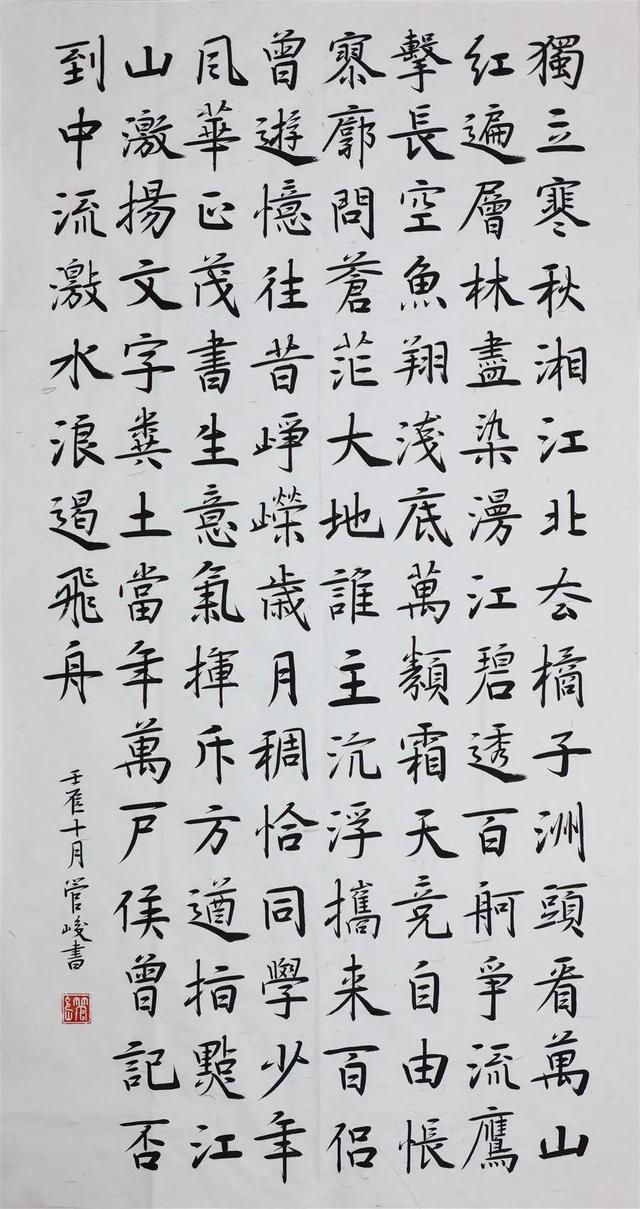 獨立寒秋湘江北去橘子洲頭看萬山
紅遍層林盡染漫江碧透百舸爭流鷹
擊長空魚翔淺底萬類霜天竞自由悵
寥廓問蒼茫大地誰主沉浮攜来百侣
曾遊憶往昔崢嶸歲月稠恰同學少年
風華正茂書生意氣揮斥方遒指點江
山激揚文字糞土當年萬户侯曾記否
到中流激水浪遏飛舟
壬寅十月管峻書